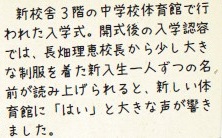 新校舎3階の中学校体育館で行
われた入学式。開式後の入学認容
では、長畑理恵校長から少し大き
な制服を着た新入生一人ずつの名
前が読み上げられると、新しい体
育館に「はい」と大きな声が響き
ました。